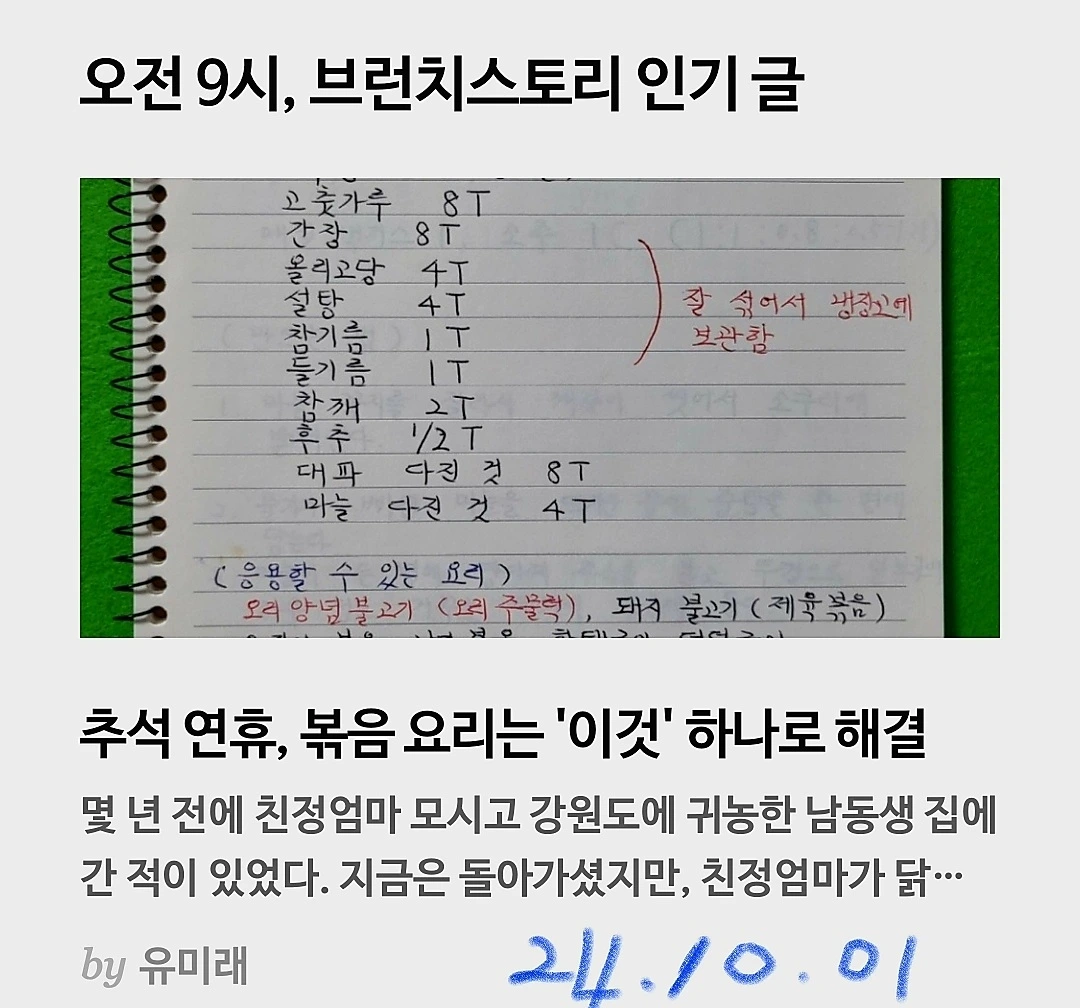 오전 9시, 브런치스토리 인기 글
고춧가루 8T
간장 8T
올리고당 4T
설탕 4T
참기름 1T
들기름 1T
참깨 2T
후추 1/2 T
대파 다진 것 8T
마늘 다진 것 4T
잘 섞어서 냉장고에
보관함
(응용할 수 있는 요리)
오리 양념 불고기 (오리 주물럭), 돼지 불고기 (제육볶음)
추석 연휴, 볶음 요리는 '이것' 하나로 해결
몇 년 전에 친정엄마 모시고 강원도에 귀농한 남동생 집에
간 적이 있었다. 지금은 돌아가셨지만, 친정엄마가 닭…
by 유미래
24.10.01